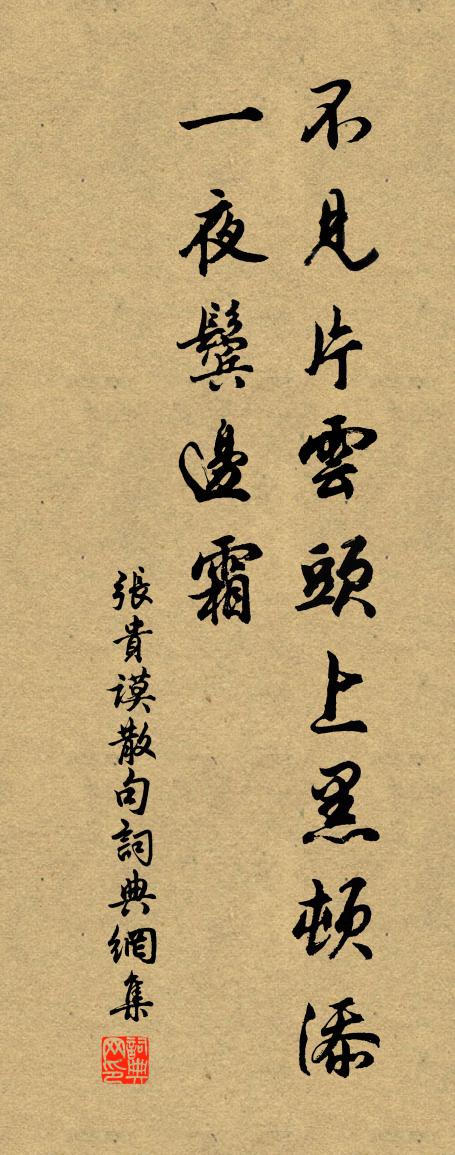 不見片雲頭上黑頓添
一夜鬢邊霜
張貴謨散句詞典網集
詞典网印